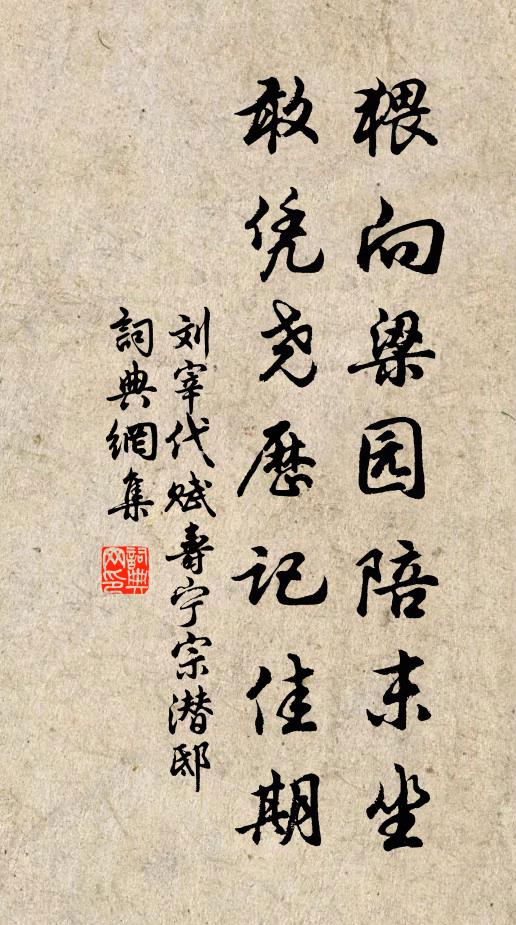 猥向梁园陪末坐
敢凭尧历记佳期
刘宰代赋寿宁宗潜邸
詞典網集
詞典网印